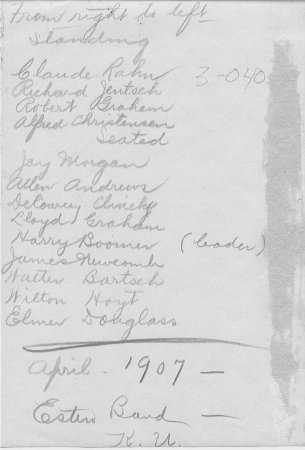 From right to left
Standing
Claude Rahn 3-040
Richard Jentsch
Robert Graham
Alfred Christensen
Seated
Jay Morgan
Allen Andrews
DeCourcy
Lloyd Graham
Harry Boomer (leader)
James Newcomb
Walter Bartsch
Wilton Hoyt
Elmer Douglass
April - 1907 -
Band -
K. U.